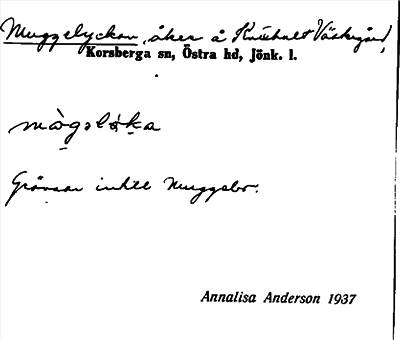 Muggelyckan, åker å Knishult Västergård,
Korsberga sn, Östra hd, Jönk. l.
mògəlɵka
Gränsar intill Muggebo.
Annalisa Anderson 1937